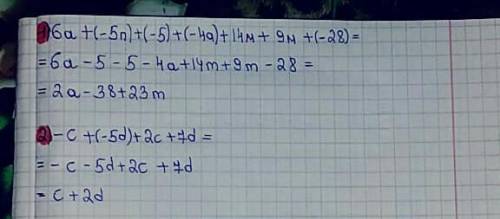 1) 6a + (-5n) + (-5) + (-4a) + 14м + 9м + (-28) =
= 6a - 5 - 5 - 4a + 14m + 9m - 28 =
= 2a - 38 + 23m
2) -c + (-5d) + 2c + 7d =
= -c - 5d + 2c + 7d
= c + 2d